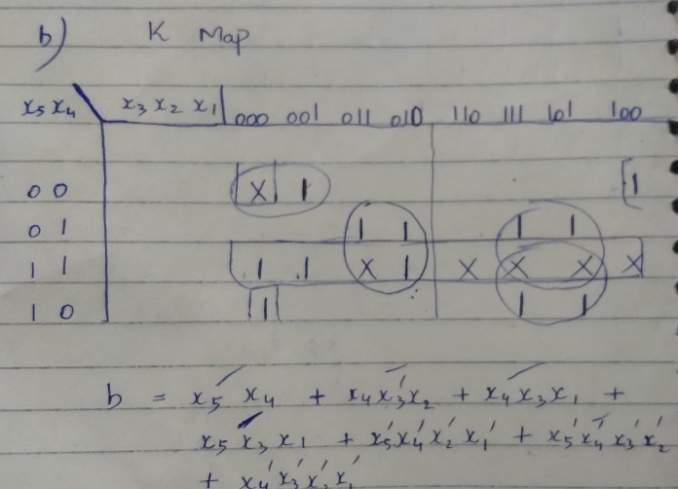 b) K Map
x5 x4 x3 x2 x1 000 001 011 010 110 111 101 100
0 0 X 1 1
0 1 1 1 1 1
1 1 1 1 X 1 X X X X
1 0 1 1 1
b = x5 x4 + x4 x3' x2 + x4 x3 x1 +
x5 x3 x1 + x5' x4' x2' x1' + x5' x4' x3' x2'
+ x4' x3' x2' x1'